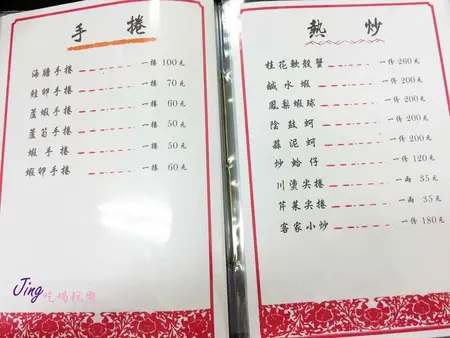 手捲
海膽手捲 一捲 100元
鮭卵手捲 一捲 70元
蘆蝦手捲 一捲 60元
蘆筍手捲 一捲 50元
蝦手捲 一捲 50元
蝦卵手捲 一捲 60元
Jing吃喝玩樂
熱炒
桂花軟殼蟹 一件 260元
鹹水蝦 一件 200元
鳳梨蝦球 一件 200元
陰豉蚵 一件 200元
蒜泥蚵 一件 200元
炒蛤仔 一件 120元
川燙尖捲 一兩 35元
芹菜尖捲 一兩 35元
客家小炒 一件 180元